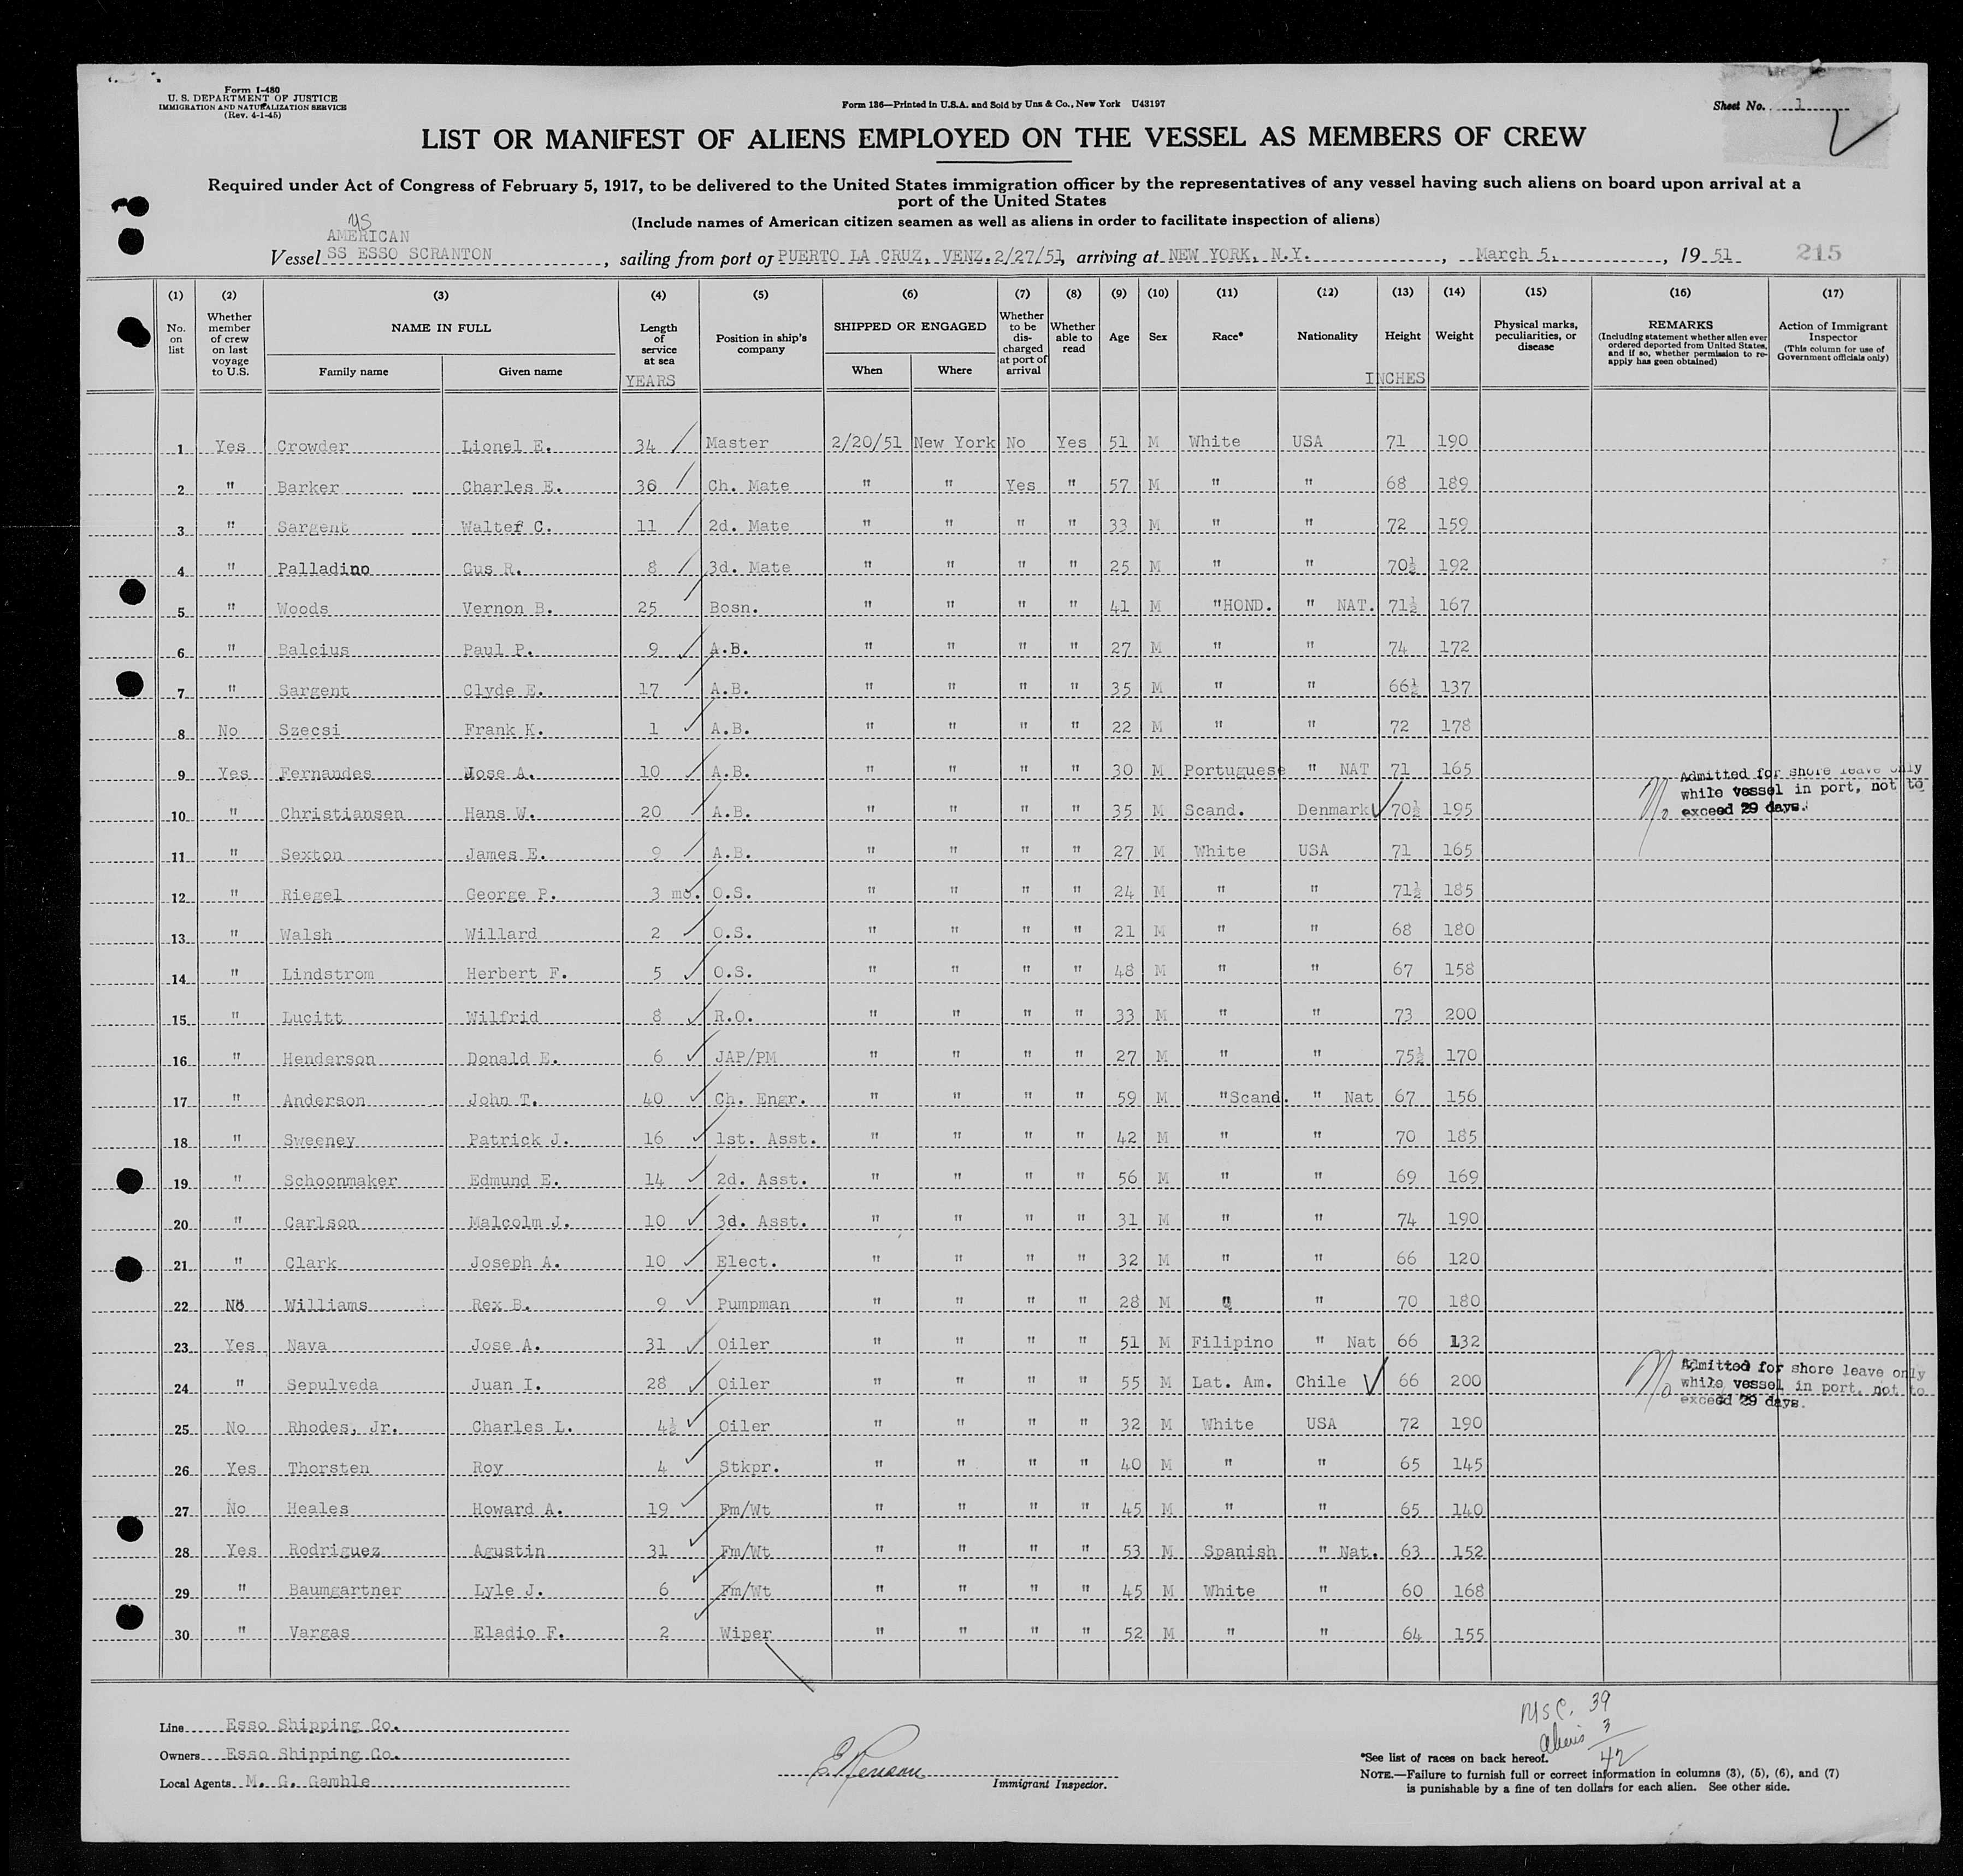 Form I-480
U. S. DEPARTMENT OF JUSTICE
IMMIGRATION AND NATURALIZATION SERVICE
(Rev. 4-1-45)
Form 136—Printed in U.S.A. and Sold by Unz & Co., New York U43197
Sheet No. 1
LIST OR MANIFEST OF ALIENS EMPLOYED ON THE VESSEL AS MEMBERS OF CREW
Required under Act of Congress of February 5, 1917, to be delivered to the United States immigration officer by the representatives of any vessel having such aliens on board upon arrival at a
port of the United States
(Include names of American citizen seamen as well as aliens in order to facilitate inspection of aliens)
US
AMERICAN
Vessel SS ESSO SCRANTON, sailing from port of PUERTO LA CRUZ, VENZ. 2/27/51, arriving at NEW YORK, N.Y., March 5, 1951 215
(1) No. on list
(2) Whether member of crew on last voyage to U.S.
(3) NAME IN FULL Family name Given name
(4) Length of service at sea YEARS
(5) Position in ship's company
(6) SHIPPED OR ENGAGED When Where
(7) Whether to be discharged at port of arrival
(8) Whether able to read
(9) Age
(10) Sex
(11) Race*
(12) Nationality
(13) Height INCHES
(14) Weight
(15) Physical marks, peculiarities, or disease
(16) REMARKS (Including statement whether alien ever ordered deported from United States, and if so, whether permission to re-apply has geen obtained)
(17) Action of Immigrant Inspector (This column for use of Government officials only)
1 Yes Crowder Lionel E. 34 Master 2/20/51 New York No Yes 51 M White USA 71 190
2 " Barker Charles E. 36 Ch. Mate " " Yes " 57 M " " 68 189
3 " Sargent Walter C. 11 2d. Mate " " " " 33 M " " 72 159
4 " Palladino Gus R. 8 3d. Mate " " " " 25 M " " 70½ 192
5 " Woods Vernon B. 25 Bosn. " " " " 41 M " HOND. " NAT. 71½ 167
6 " Balcius Paul P. 9 A.B. " " " " 27 M " " 74 172
7 " Sargent Clyde E. 17 A.B. " " " " 35 M " " 66½ 137
8 No Szecsi Frank K. 1 A.B. " " " " 22 M " " 72 178
9 Yes Fernandes Jose A. 10 A.B. " " " " 30 M Portuguese " NAT 71 165
10 " Christiansen Hans W. 20 A.B. " " " " 35 M Scand. Denmark 70½ 195 Admitted for shore leave only while vessel in port, not to exceed 29 days.
11 " Sexton James E. 9 A.B. " " " " 27 M White USA 71 165
12 " Riegel George P. 3 mo. O.S. " " " " 24 M " " 71½ 185
13 " Walsh Willard 2 O.S. " " " " 21 M " " 68 180
14 " Lindstrom Herbert F. 5 O.S. " " " " 48 M " " 67 158
15 " Lucitt Wilfrid 8 R.O. " " " " 33 M " " 73 200
16 " Henderson Donald E. 6 JAP/PM " " " " 27 M " " 75½ 170
17 " Anderson John T. 40 Ch. Engr. " " " " 59 M " Scand. " Nat 67 156
18 " Sweeney Patrick J. 16 1st. Asst. " " " " 42 M " " 70 185
19 " Schoonmaker Edmund E. 14 2d. Asst. " " " " 56 M " " 69 169
20 " Carlson Malcolm J. 10 3d. Asst. " " " " 31 M " " 74 190
21 " Clark Joseph A. 10 Elect. " " " " 32 M " " 66 120
22 No Williams Rex B. 9 Pumpman " " " " 28 M " " 70 180
23 Yes Nava Jose A. 31 Oiler " " " " 51 M Filipino " Nat 66 132
24 " Sepulveda Juan I. 28 Oiler " " " " 55 M Lat. Am. Chile 66 200 Admitted for shore leave only while vessel in port, not to exceed 29 days.
25 No Rhodes, Jr. Charles L. 4½ Oiler " " " " 32 M White USA 72 190
26 Yes Thorsten Roy 4 Stkpr. " " " " 40 M " " 65 145
27 No Heales Howard A. 19 Fm/Wt " " " " 45 M " " 65 140
28 Yes Rodriguez Agustin 31 Fm/Wt " " " " 53 M Spanish " Nat. 63 152
29 " Baumgartner Lyle J. 6 Fm/Wt " " " " 45 M White " 60 168
30 " Vargas Eladio F. 2 Wiper " " " " 52 M " " 64 155
Line Esso Shipping Co.
Owners Esso Shipping Co.
Local Agents M. G. Gamble
Immigrant Inspector.
39
Aliens 3
42
*See list of races on back hereof.
NOTE.—Failure to furnish full or correct information in columns (3), (5), (6), and (7)
is punishable by a fine of ten dollars for each alien. See other side.